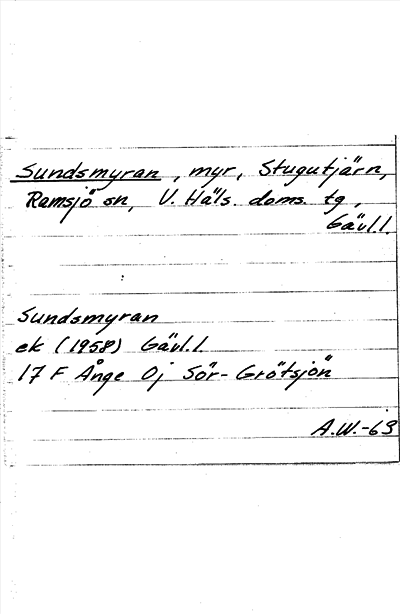 Sundsmyran, myr, Stugutjärn,
Ramsjö sn, V. Häls. doms. tg,
Gävl.l.
Sundsmyran
ek (1958) Gävl.l.
17 F Ånge 0j Sör-Grötsjön
A.W.-63